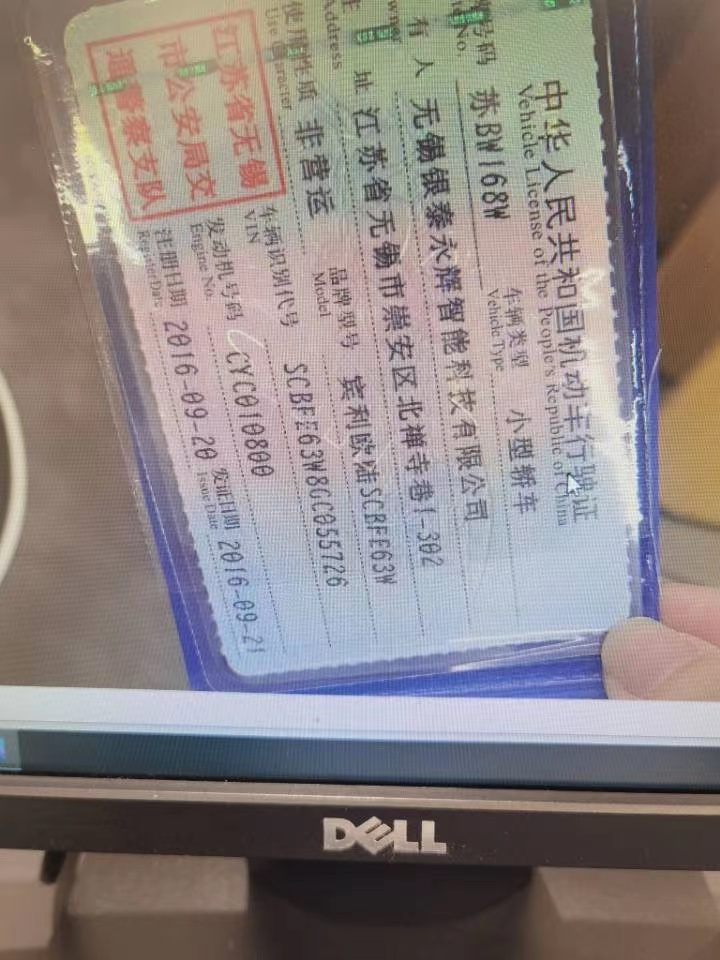 中华人民共和国机动车行驶证
Vehicle License of the People's Republic of China
号码 苏BW168W 车辆类型 小型轿车
No. Vehicle Type
有人 无锡银泰永辉智能科技有限公司
址 江苏省无锡市崇安区北禅寺巷1-302
Address
使用性质 非营运 品牌型号 宾利欧陆SCBFE63W
Use Model
江苏省无锡
市公安局交
通警察支队
车辆识别代号 SCBFE63W8GC055726
VIN
发动机号码 CYC010800
Engine No.
注册日期 2016-09-20 发证日期 2016-09-21
Register Date Issue Date
DELL